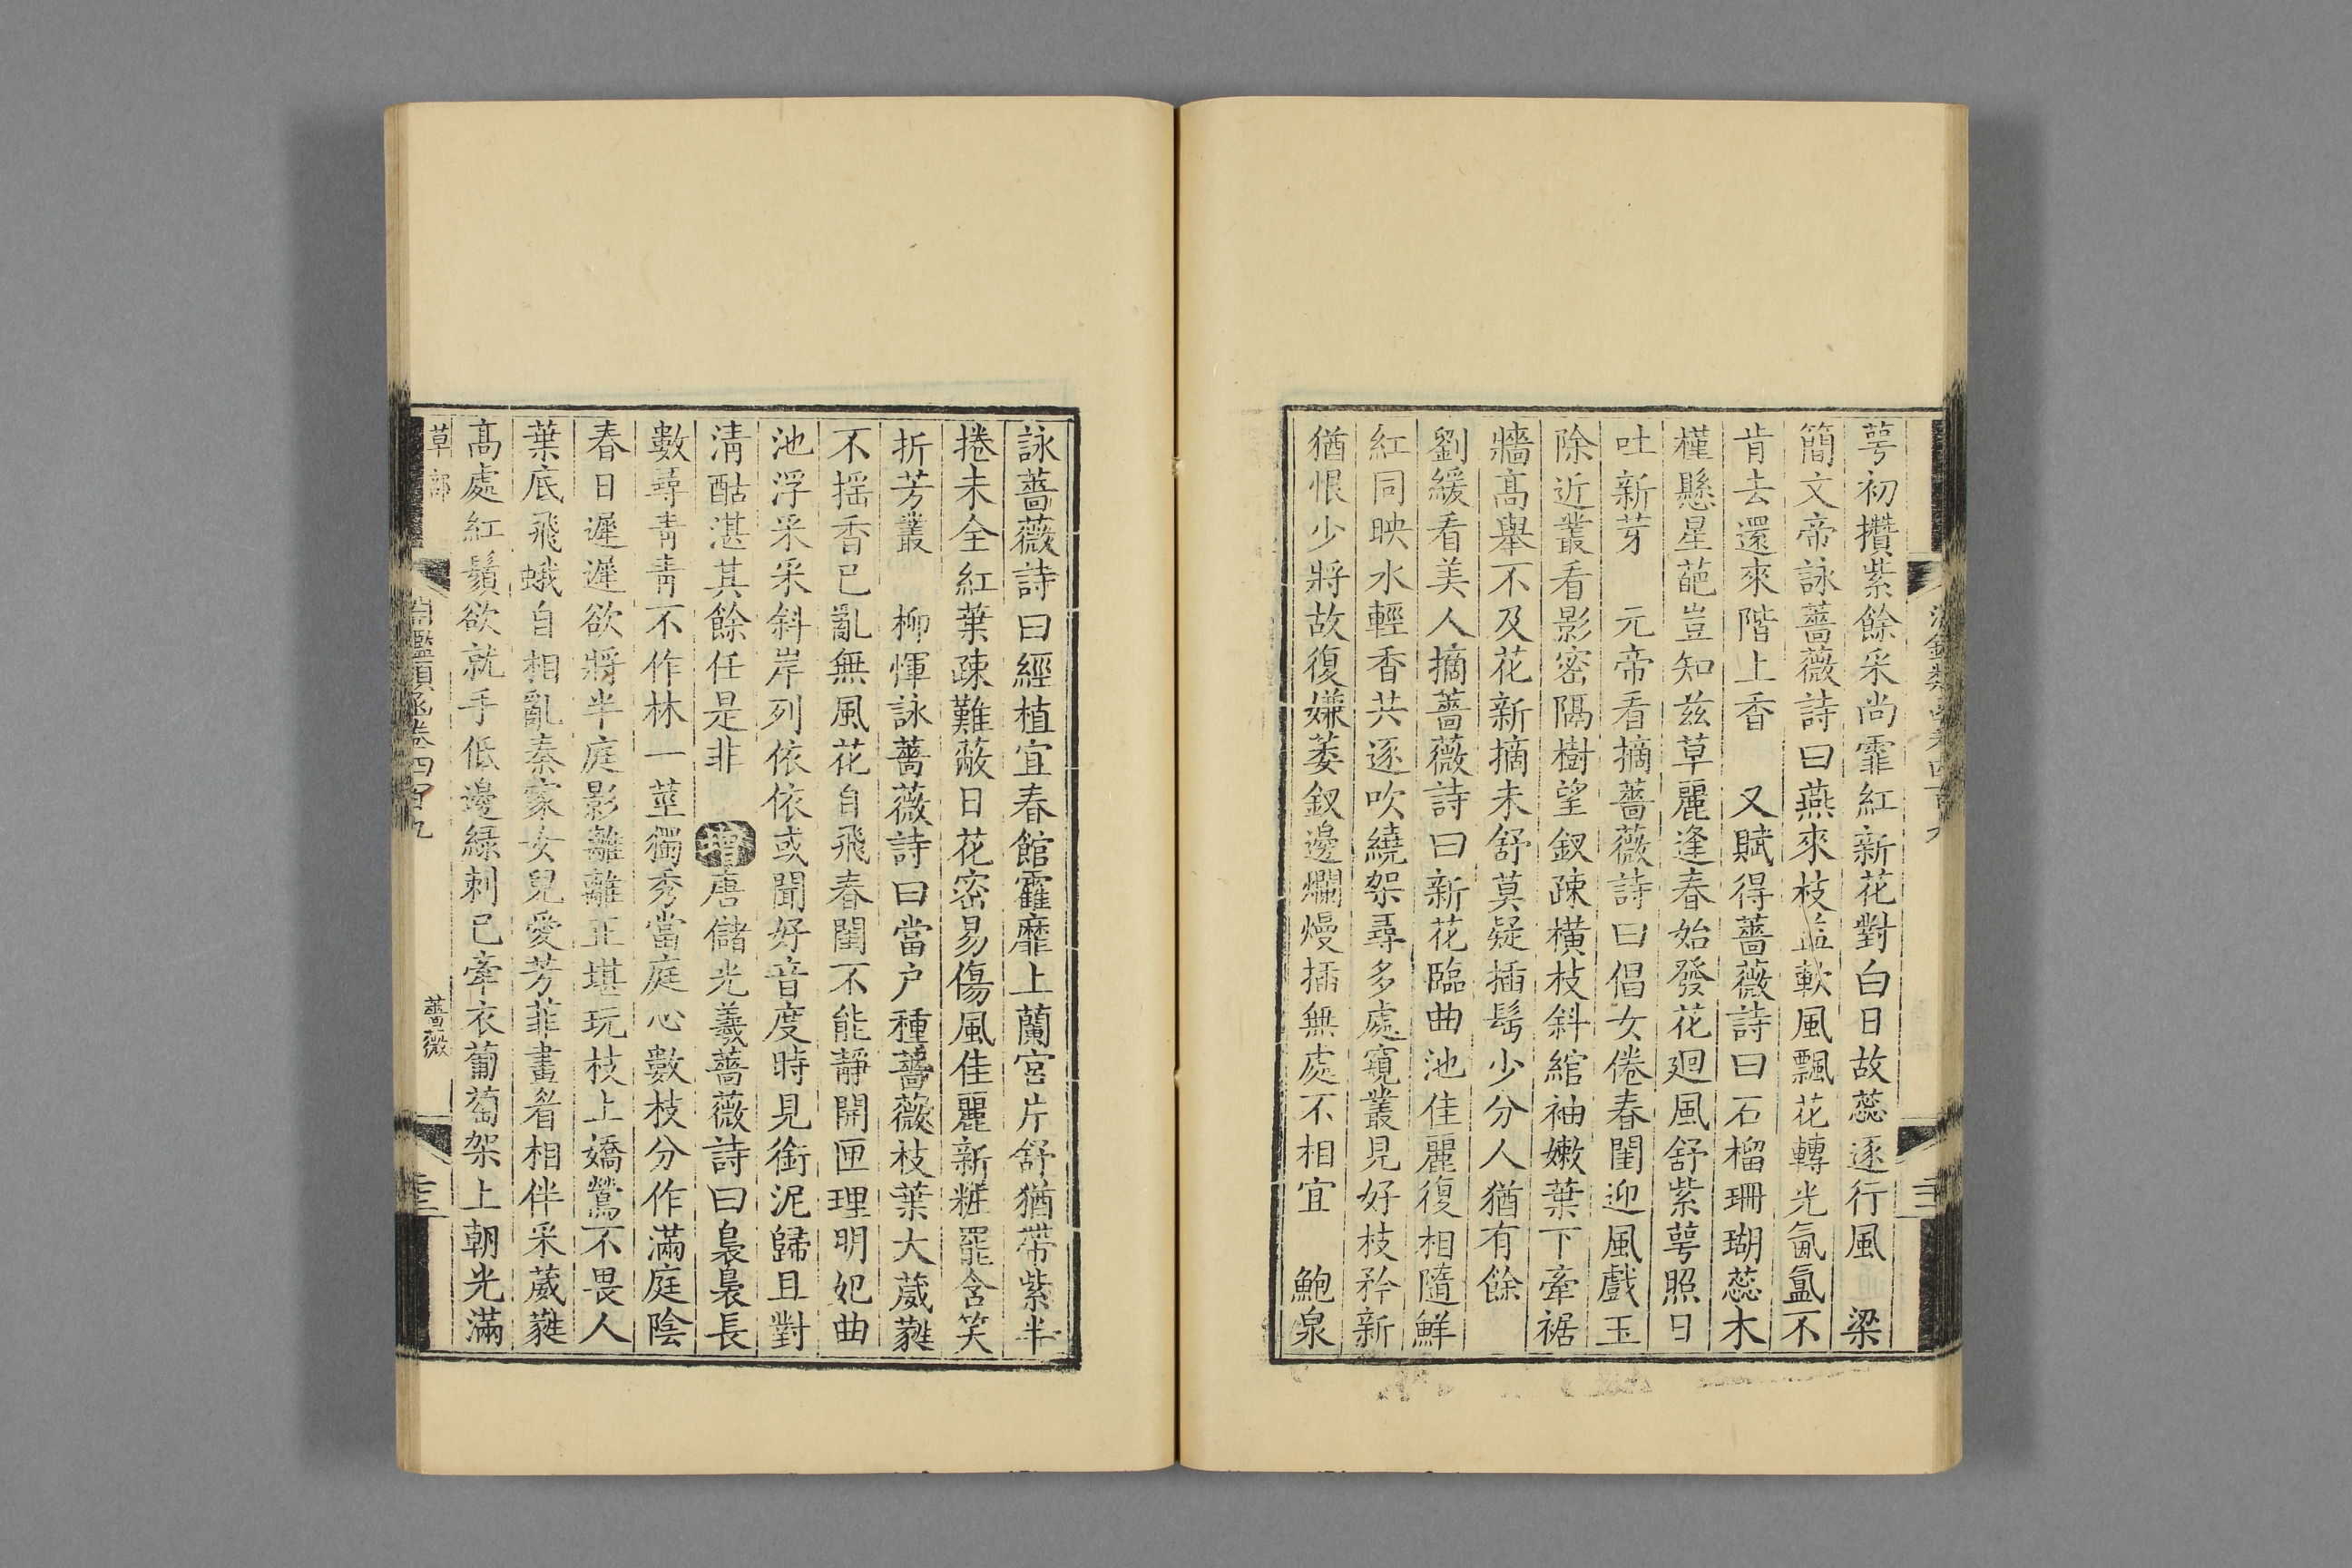 萼初攢紫餘采尚霏紅新花對白日故蕊逐行風 梁
簡文帝詠薔薇詩曰燕來枝益軟風飄花轉光氤氳不
肯去還來階上香 又賦得薔薇詩曰石榴珊瑚蕊木
槿懸星葩豈知兹草麗逢春始發花廻風舒紫萼照日
吐新芽 元帝看摘薔薇詩曰倡女倦春閨迎風戲玉
除近叢看影密隔樹望釵疎橫枝斜綰袖嫩葉下牽裾
牆高舉不及花新摘未舒莫疑插髩少分人猶有餘
劉緩看美人摘薔薇詩曰新花臨曲池佳麗復相隨鮮
紅同映水輕香共逐吹繞架尋多處窺叢見好枝矜新
猶恨少將故復嫌萎釵邊爛熳插無處不相宜 鮑泉
詠薔薇詩曰經植宜春館霍靡上蘭宮片舒猶帶紫半
捲未全紅葉疎難蔽日花密易傷風佳麗新粧罷含笑
折芳叢 柳惲詠薔薇詩曰當户種薔薇枝葉大葳蕤
不摇香已亂無風花自飛春閨不能靜開匣理明妃曲
池浮采采斜岸列依依或聞好音度時見銜泥歸且對
清酤湛其餘任是非 增唐儲光羲薔薇詩曰裊裊長
數尋青青不作林一莖獨秀當庭心數枝分作滿庭陰
春日遲遲欲將半庭影離離正堪玩枝上嬌鶯不畏人
葉底飛蛾自相亂秦家女兒愛芳菲畫眷相伴采葳蕤
高處紅鬚欲就手低邊緑刺已牽衣葡萄架上朝光滿
草部
淵鑑類函卷四百九
薔薇